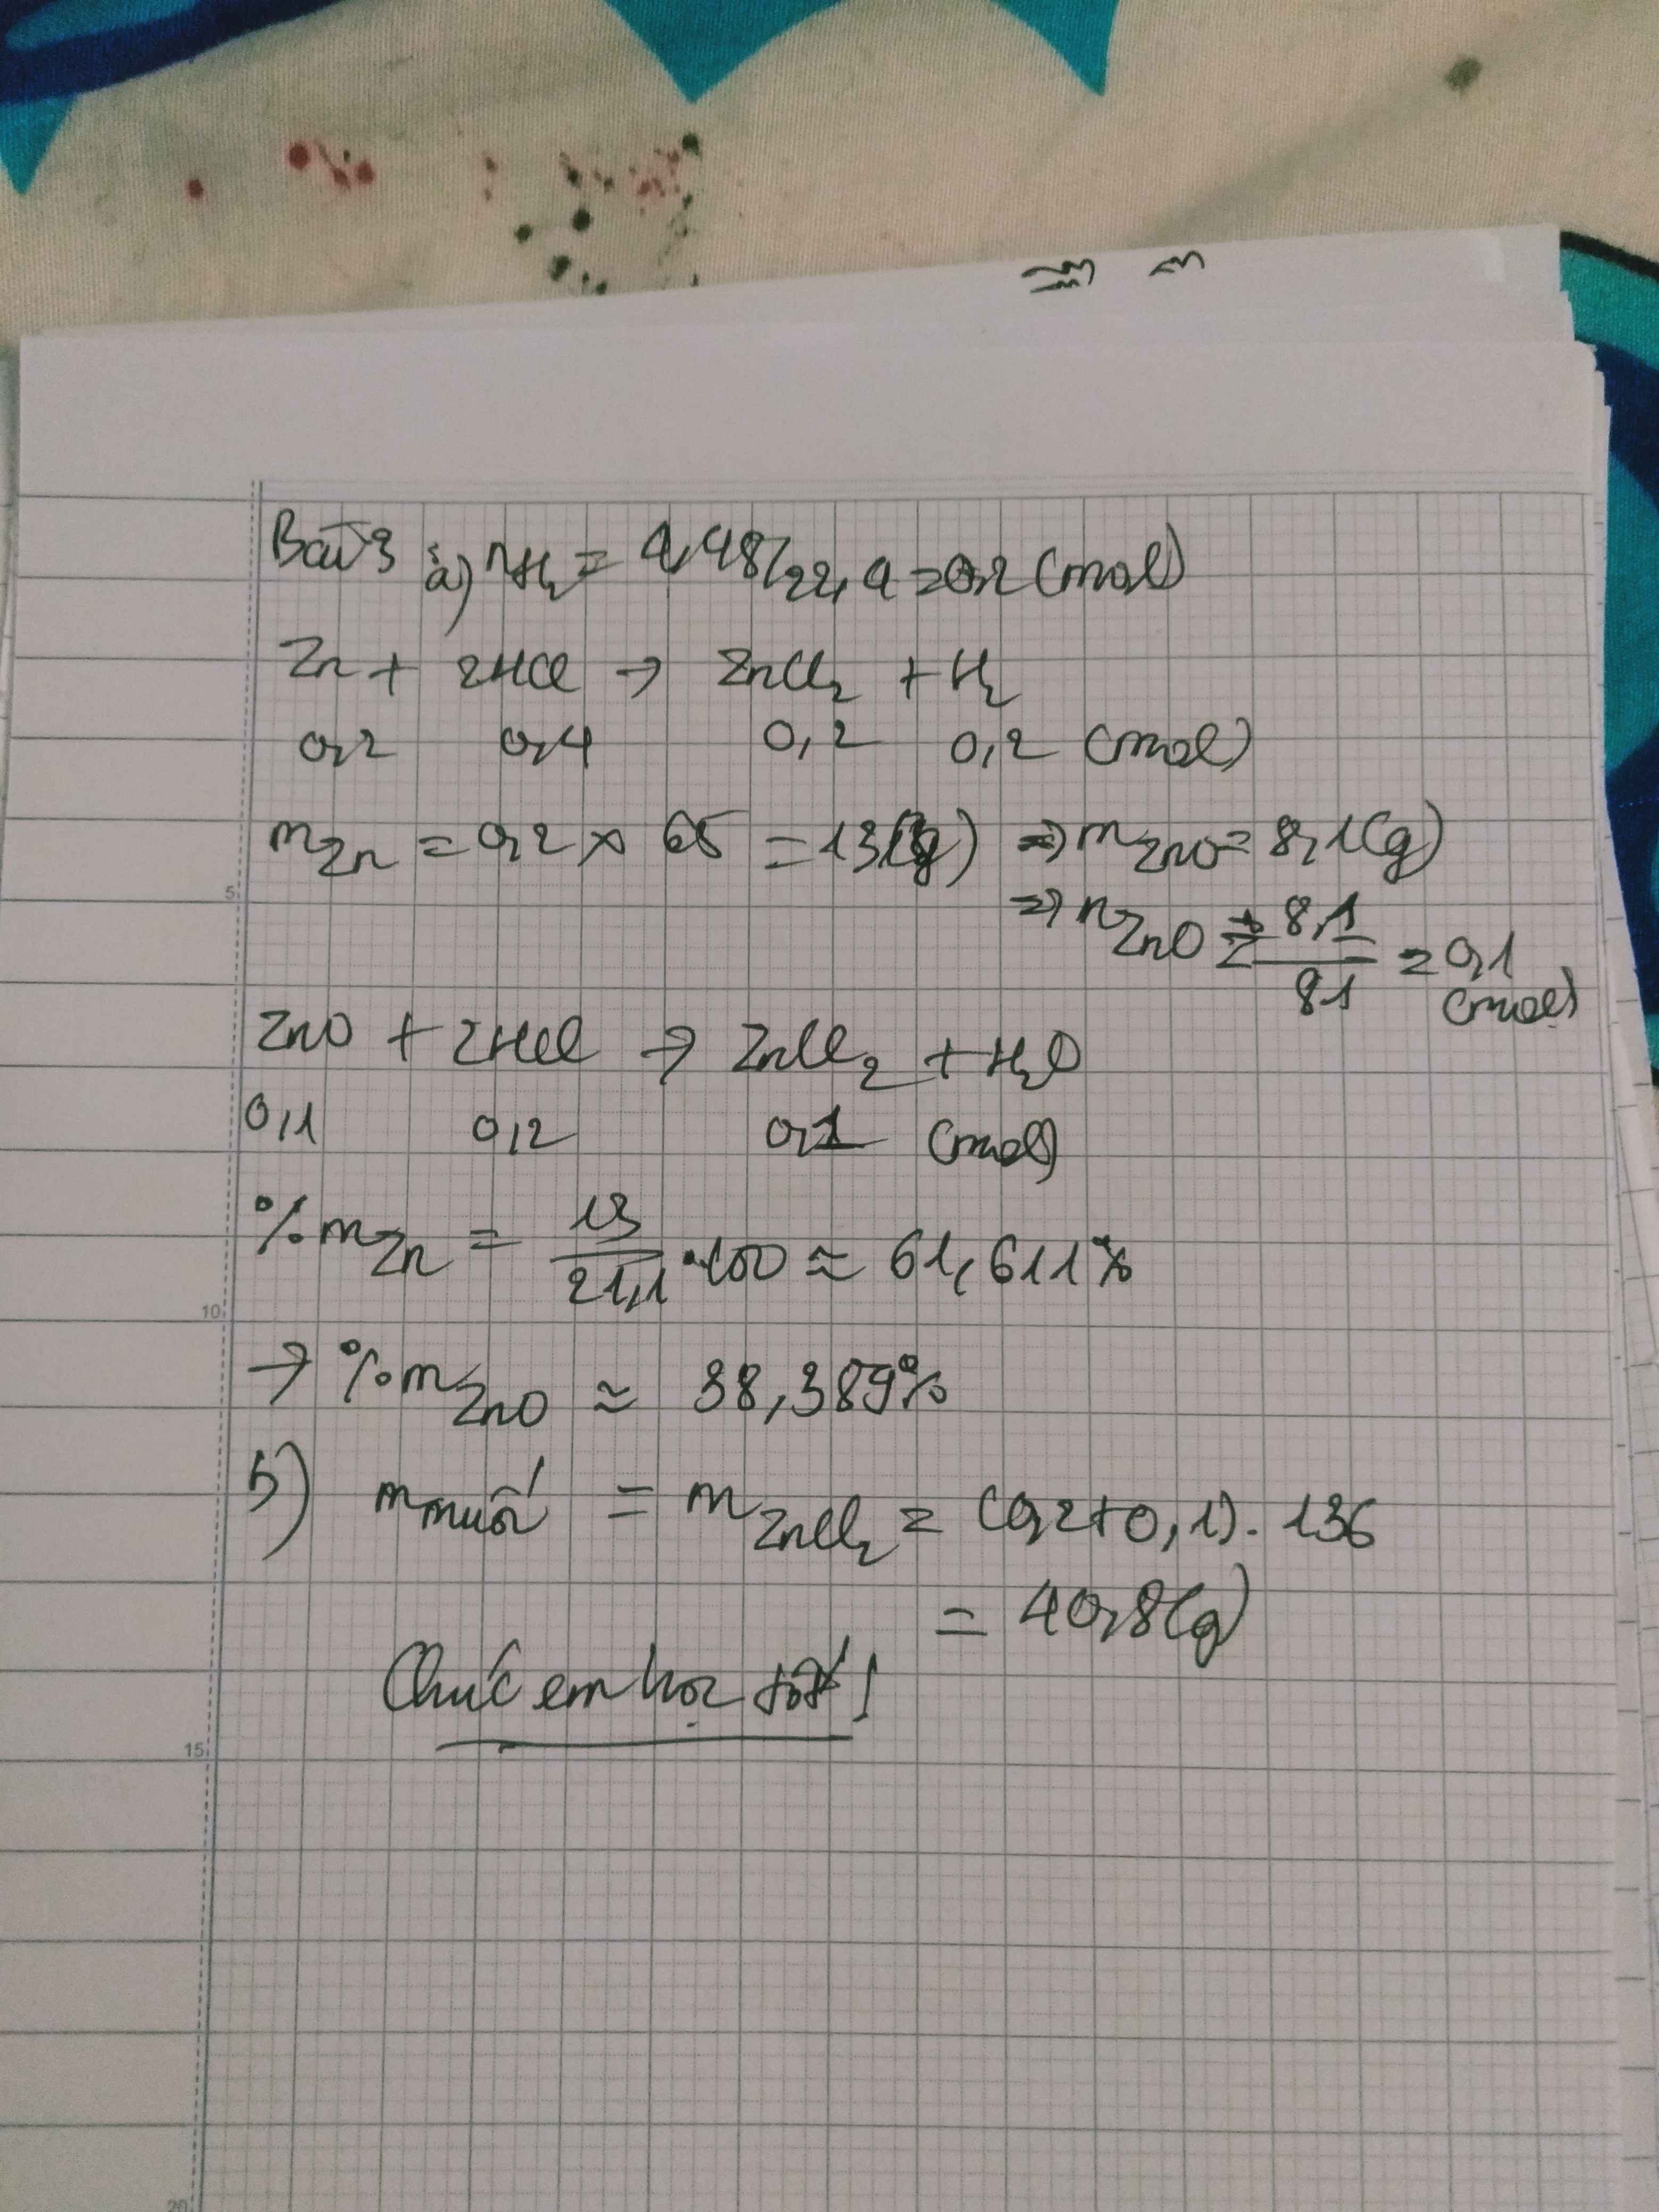 Bài 3 a) nH₂ = 4,48/22,4 = 0,2 (mol)
Zn + 2HCl → ZnCl₂ + H₂
0,2 0,4 0,2 0,2 (mol)
mZn = 0,2 × 65 = 13 (g) ⇒ mZnO = 8,1 (g)
⇒ nZnO = 8,1/81 = 0,1 (mol)
ZnO + 2HCl → ZnCl₂ + H₂O
0,1 0,2 0,1 (mol)
%mZn = 13/21,1 · 100 ≈ 61,611%
→ %mZnO ≈ 38,389%
b) m muối = mZnCl₂ = (0,2+0,1). 136
= 40,8 (g)
Chúc em học tốt!
5
10
15
20